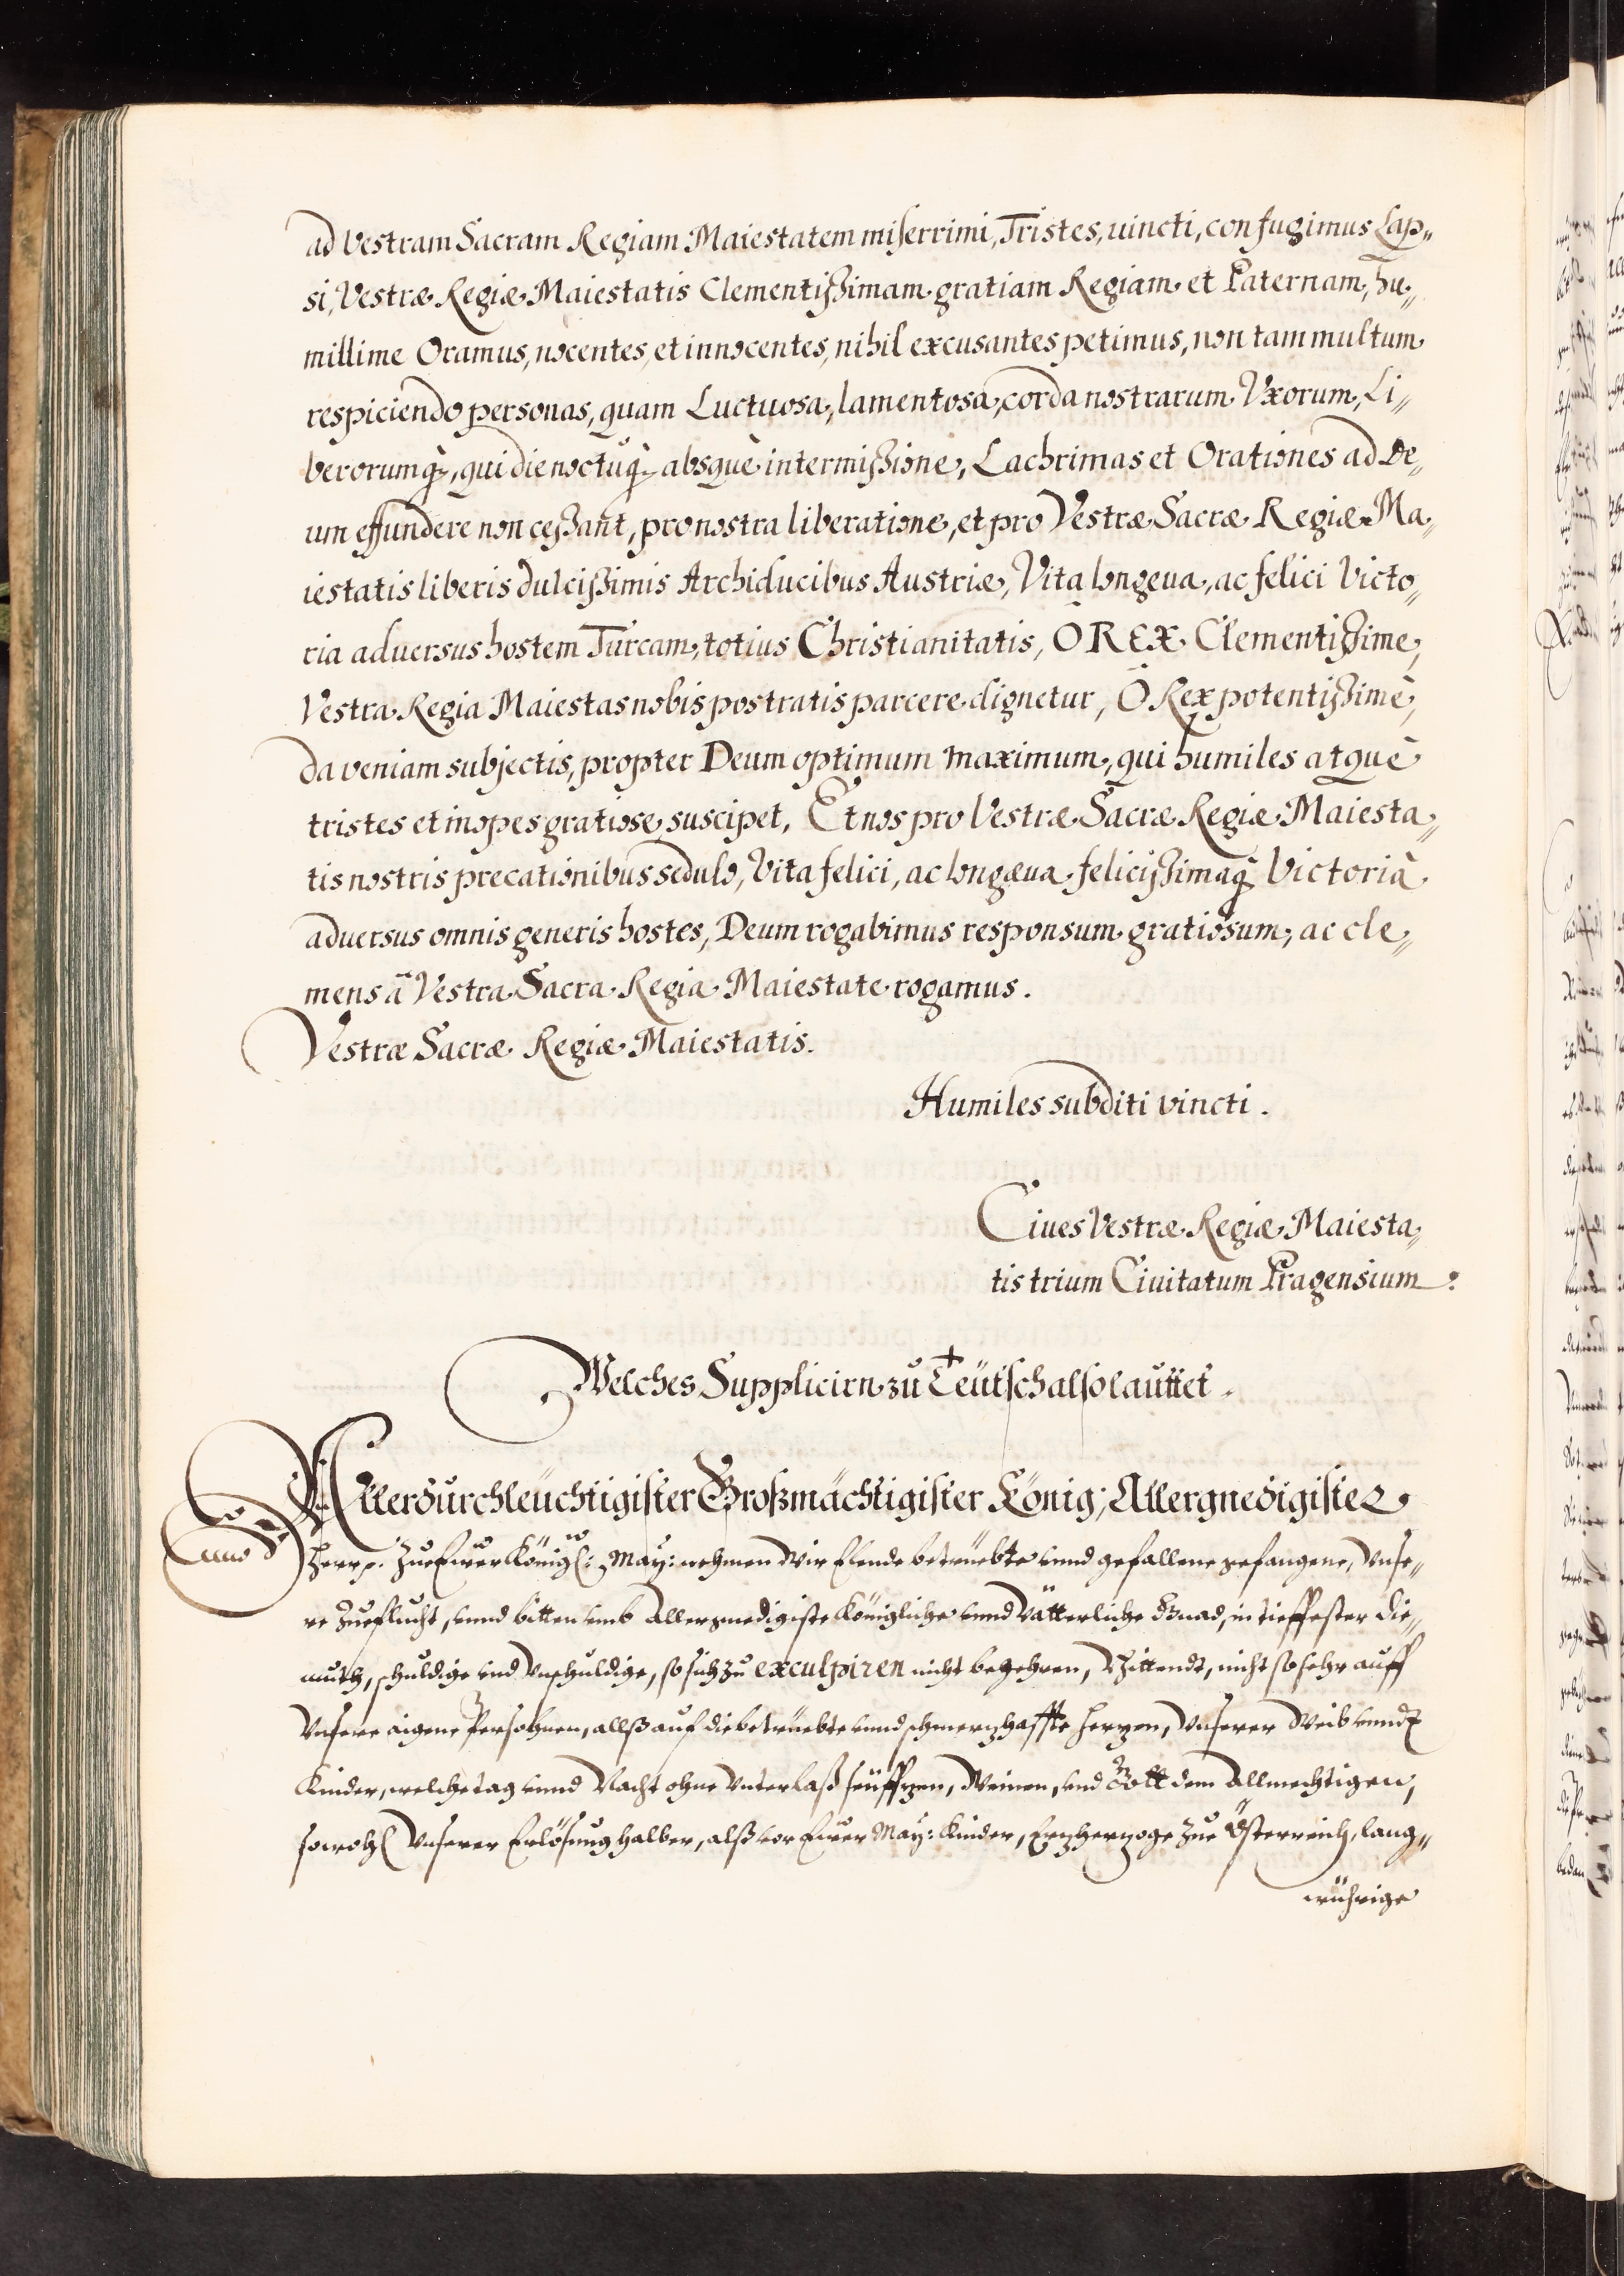 ad Vestram Sacram Regiam Maiestatem miserrimi, Tristes, uincti, confugimus Lap„
si, Vestræ Regiæ Maiestatis Clementißimam gratiam Regiam et Paternam, hu„
millime Oramus, nocentes, et innocentes, nihil excusantes petimus, non tam multum
respiciendo personas, quam Luctuosa, lamentosa, corda nostrarum Vxorum, Li„
berorumq̃, qui die noctuq̃ absquè intermißione, Lachrimas et Orationes ad De„
um effundere non ceßant, pro nostra liberatione, et pro Vestræ Sacræ Regiæ Ma„
iestatis liberis dulcißimis Archiducibus Austriæ, Vita longeua, ac felici Victo„
ria aduersus hostem Turcam, totius Christianitatis, O REX Clementißime,
Vestra Regia Maiestas nobis postratis parcere dignetur, Ô Rex potentißimè,
da veniam subjectis, propter Deum optimum maximum, qui humiles atquè
tristes et inopes gratiose suscipet, Et nos pro Vestræ Sacræ Regiæ Maiesta„
tis nostris precationibus sedulo, Vita felici, ac longæua felicißimaq̃ Victorià
aduersus omnis generis hostes, Deum rogabimus responsum gratiosum, ac cle„
mens ã Vestra Sacra Regia Maiestate rogamus.
Vestræ Sacræ Regiæ Maiestatis.
Humiles subditi vincti.
Ciues Vestræ Regiæ Maiesta„
tis trium Ciuitatum Pragensium.
Welches Supplicirn zu Teütsch also lauttet.
Allerdurchleüchtigister Großmächtigister König, Allergnedigister
Herr p. Zue Euer Königl: May: nehmen Wir Elende betrüebte vnnd gefallene gefangene, Vnse„
re Zueflucht, vnnd bitten vmb Allergnedigiste Königliche vnnd Vätterliche Gnad, in tieffester Die„
muth, schuldige vnd Vnschuldige, so sich zu exculpiren nicht begehren, Bittendt, nicht so sehr auff
Vnsere aigene Persohnen, allß auf die betrüebte vnnd schmerzhaffte Herzen, Vnserer Weib vnndt
Kinder, welche tag vnnd Nacht ohne Vnterlaß seüffzen, Weinen, vnd Gott dem Allmechtigen,
sowohl Vnserer Erlösung halber, alß vor Euer May: Kinder, Erzherzoge zue Össterreich, lang„
würige